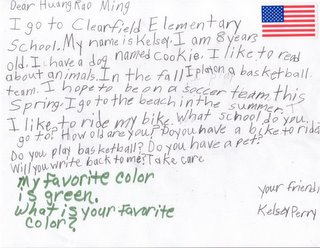 Dear Huang Rao Ming
I go to Clearfield Elementary
School. My name is Kelsey. I am 8 years
old. I have a dog named Cookie. I like to read
about animals. In the fall I plat on a basketball
team. I hope to be on a soccer team this
Spring. I go to the beach in the summer.
I like to ride my bike. What school do you
go to? How old are you? Do you have a bike to ride?
Do you play basketball? Do you have a pet?
Will you write back to me? Take care
My favorite color
is green.
What is your favorite
color?
your friend,
Kelsey Perry